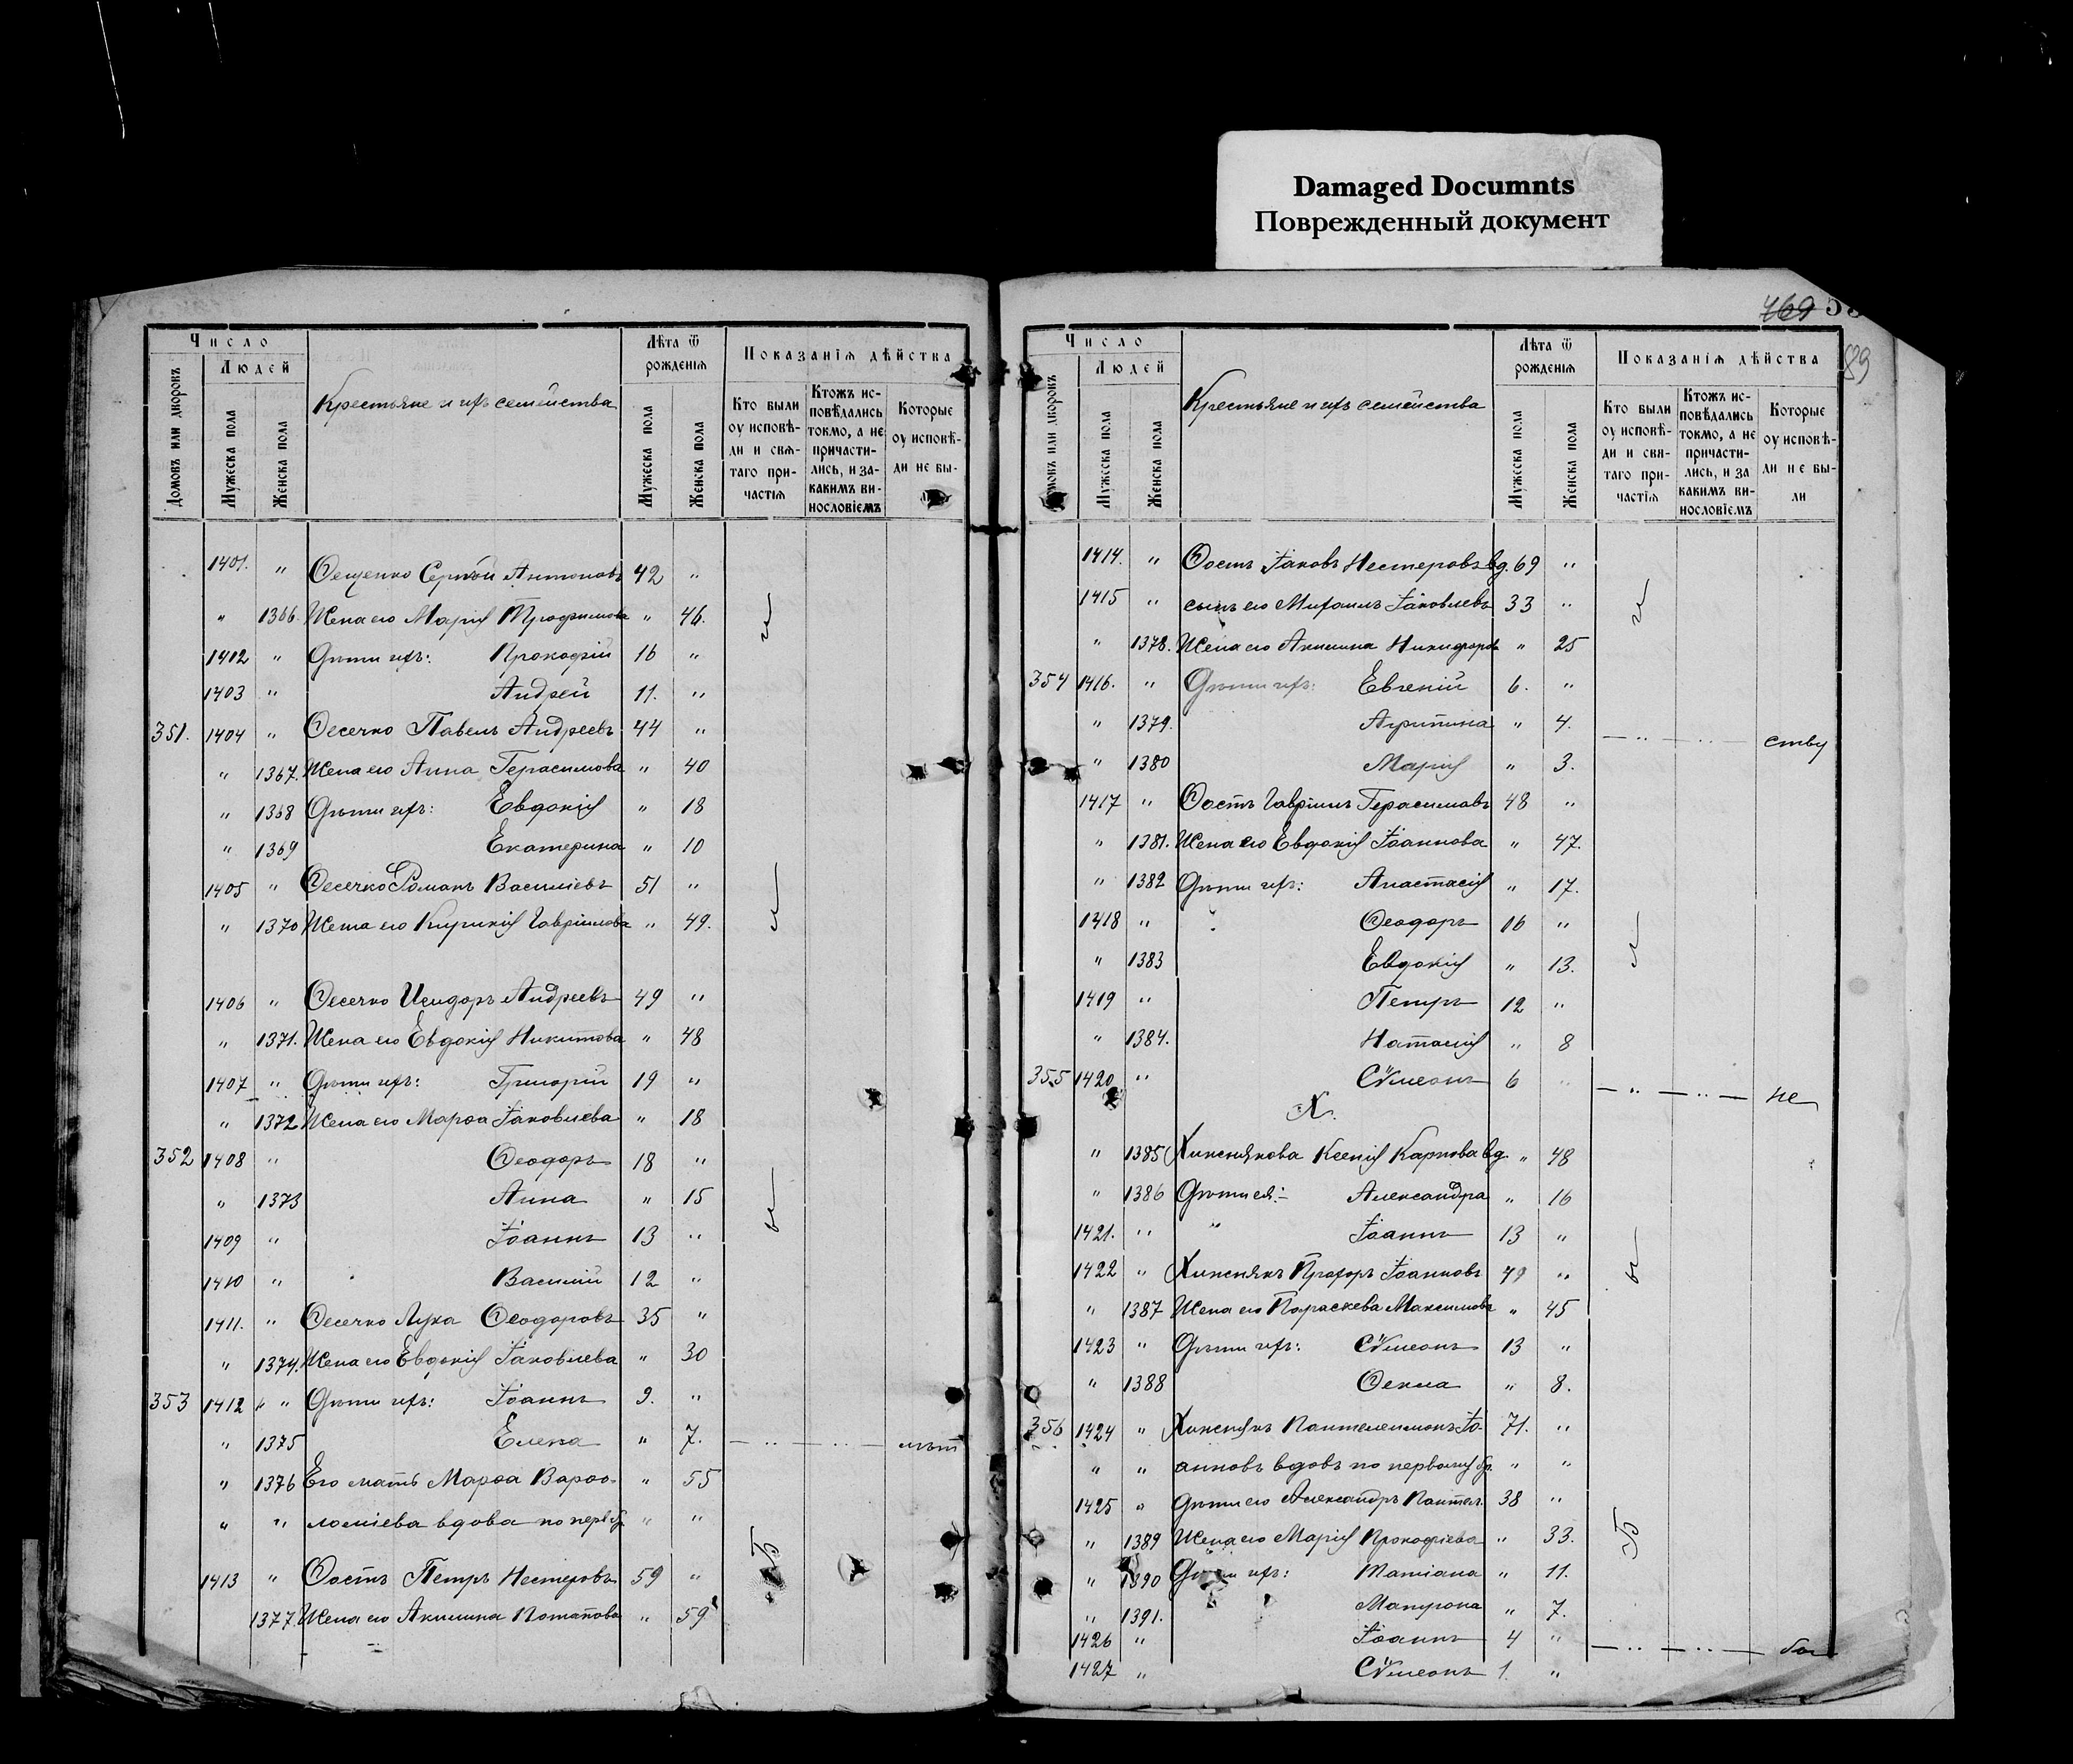 Damaged Documnts
Поврежденный документ
Число
Людей
Домовъ или дворовъ
Мужеска пола
Женска пола
Крестьяне и ихъ семейства
Лѣта ѿ рожденія
Мужеска пола
Женска пола
Показанія дѣйства
Кто были оу исповѣ-
ди и свя-
таго при-
частія
Ктожъ ис-
повѣдались
токмо, а не
причасти-
лись, и за-
какимъ ви-
нословіемъ
Которые
оу исповѣ-
ди не бы-
1401. " Ѳещенко Сергѣй Антоновъ 42 "
" 1366 Жена его Марія Трофимова " 46.
1402 " Дѣти ихъ: Прокофій 16 "
1403 " Андрей 11. "
351. 1404 " Ѳесечко Павелъ Андреевъ 44 "
" 1367. Жена его Анна Герасимова " 40
" 1368 Дѣти ихъ: Евдокія " 18
" 1369 Екатерина " 10
1405 " Ѳесечко Романъ Василіевъ 51 "
" 1370 Жена его Кирикія Гавріилова " 49.
1406 " Ѳесечко Исидоръ Андреевъ 49 "
" 1371. Жена его Евдокія Никитова " 48
1407 " Дѣти ихъ: Григорій 19 "
" 1372 Жена его Марѳа Іаковлева " 18
352 1408 " Ѳеодоръ 18 "
" 1373 Анна " 15
1409 " Іоаннъ 13 "
1410 " Василій 12 "
1411. " Ѳесечко Лука Ѳеодоровъ 35 "
" 1374. Жена его Евдокія Іаковлева " 30
353 1412 " Дѣти ихъ: Іоаннъ 9. "
" 1375 Елена " 7. — " — " — лѣт
" 1376 Его мать Марѳа Варѳо- " 55
" " ломіева вдова по перв бр. " "
1413 " Ѳостъ Петръ Нестеровъ 59 "
1377. Жена его Акилина Потапова " 59
769
89
Число
Людей
Домовъ или дворовъ
Мужеска пола
Женска пола
Крестьяне и ихъ семейства
Лѣта ѿ рожденія
Мужеска пола
Женска пола
Показанія дѣйства
Кто были
оу исповѣ-
ди и свя-
таго при-
частія
Ктожъ ис-
повѣдались
токмо, а не
причасти-
лись, и за
какимъ ви-
нословіемъ
Которые
оу исповѣ-
ди не бы-
ли
1414. " Ѳостъ Іаковъ Нестеровъ вд. 69 "
1415 " сынъ его Михаилъ Іаковлевъ 33 "
" 1378. Жена его Акилина Никифоров " 25
354 1416. " Дѣти ихъ: Евгеній 6. "
" 1379. Агрипина " 4. — " — " — ству
" 1380 Марія " 3.
1417 " Ѳостъ Гавріилъ Герасимовъ 48 "
" 1381. Жена его Евдокія Іоаннова " 47.
" 1382 Дѣти ихъ: Анастасія " 17.
1418 " Ѳеодоръ 16 "
" 1383 Евдокія " 13.
1419 " Петръ 12 "
" 1384. Наталія " 8
355 1420 " Сѵмеонъ 6 " — " — " — не
Х.
" 1385 Хижнякова Ксенія Карпова вд. " 48
" 1386 Дѣти ея: Александра " 16
1421. " Іоаннъ 13 "
1422 " Хижнякъ Прохоръ Іоанновъ 49 "
" 1387 Жена его Параскева Максимова " 45
1423 " Дѣти ихъ: Сѵмеонъ 13 "
" 1388 Ѳекла " 8.
356 1424 " Хижнякъ Пантелеимонъ Іо- 71. "
" " анновъ вдовъ по первому бр. " "
1425 " Дѣти его Александръ Пантел. 38 "
" 1389 Жена его Марія Прокофіева " 33.
" 1390 Дѣти ихъ: Татіана " 11.
" 1391. Матрона " 7.
1426 " Іоаннъ 4 " — " — " — бол
1427 " Сѵмеонъ 1. "